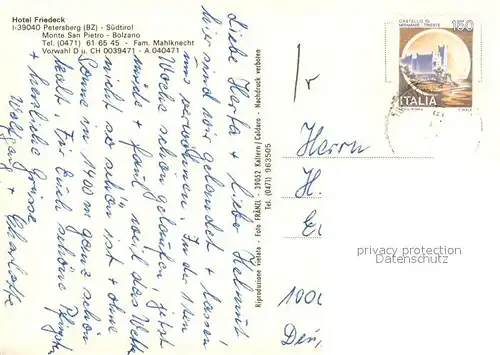 Hotel Friedeck
I-39040 Petersberg (BZ) - Südtirol
Monte San Pietro - Bolzano
Tel. (0471) 61 65 45 - Fam. Mahlknecht
Vorwahl D u. CH 0039471 - A 040471
Liebe Herta + liebe Helmut
hier sind wir gelandet + lassen
uns verwöhnen. In der 1sten
Woche schön gelaufen, jetzt
müde + faul weil das Wette
nicht so schön ist + ohne
Sonne in 1400 m ganz schön
kalt. Für Euch schöne Pfingst
+ herzliche Grüsse
Wolfgang + Charlotte
Riproduzione vietata - Foto FRÄNZL - 39052 Kaltern/Caldaro - Nachdruck verboten
Tel. (0471) 963505
CASTELLO DI
MIRAMARE TRIESTE
150
ITALIA
Herrn
H.
privacy protection
Datenschutz
100